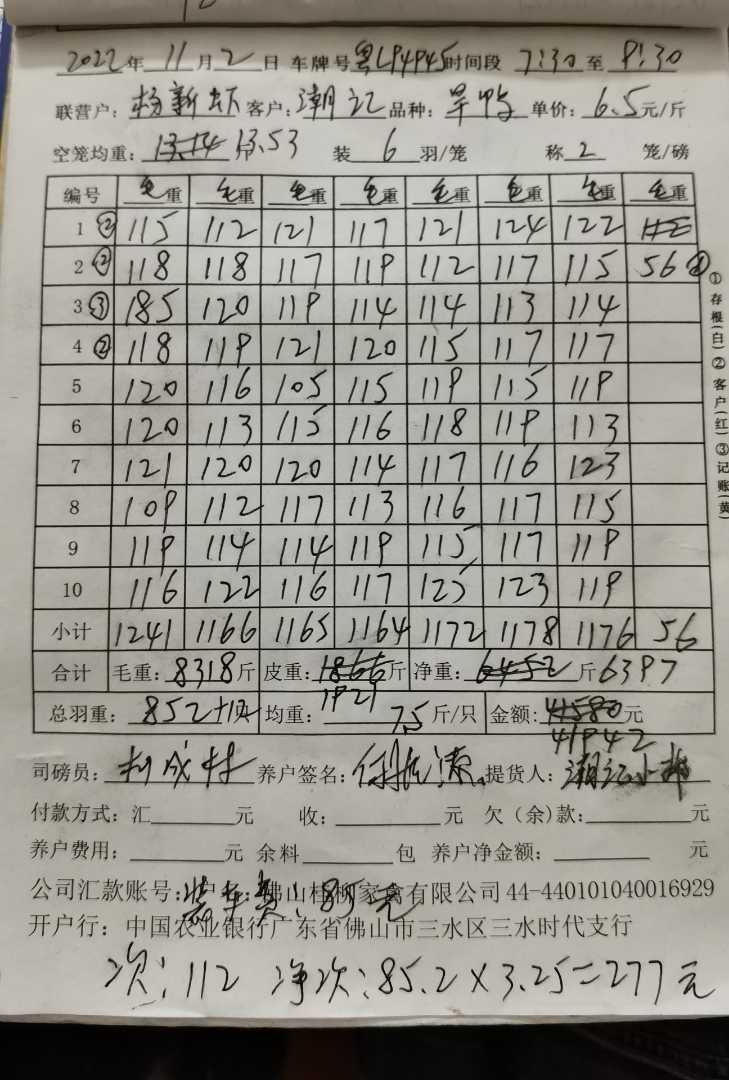 2022年 11月 2日 车牌号 粤LP4P45 时间段 7:30 至 9:30
联营户: 杨新虾 客户: 潮记 品种: 旱鸭 单价: 6.5元/斤
空笼均重: 13.14 13.53 装 6 羽/笼 称 2 笼/磅
编号 毛重 毛重 毛重 毛重 毛重 毛重 毛重 毛重
1 ② 115 112 121 117 121 124 122
2 ② 118 118 117 119 112 117 115 56
3 ③ 185 120 119 114 114 113 114
4 ② 118 119 121 120 115 117 117
5 120 116 105 115 119 115 119
6 120 113 115 116 118 119 113
7 121 120 120 114 117 116 123
8 109 112 117 113 116 117 115
9 119 114 114 119 115 117 119
10 116 122 116 117 125 123 119
小计 1241 1166 1165 1164 1172 1178 1176 56
合计 毛重: 8318斤 皮重: 1866斤 净重: 6452斤 6397
1921
总羽重: 852 均重: 7.5 斤/只 金额: 41580元
41942
司磅员: 养户签名: 提货人: 潮记小
付款方式: 汇 元 收: 元 欠(余)款: 元
养户费用: 元 余料 包 养户净金额: 元
公司汇款账号: 户 佛山桂柳家禽有限公司 44-440101040016929
装车费: 85元
开户行: 中国农业银行广东省佛山市三水区三水时代支行
次: 112 净次: 85.2×3.25=277元
①存根(白)②客户(红)③记账(黄)